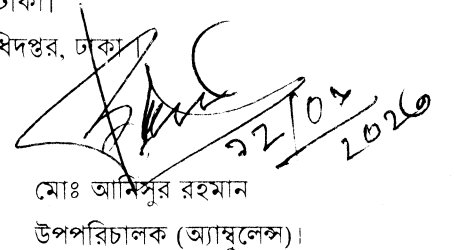 ঢাকা।
ধিদপ্তর, ঢাকা।
২০২৩
মোঃ আনিসুর রহমান
উপপরিচালক (অ্যাম্বুলেন্স)।